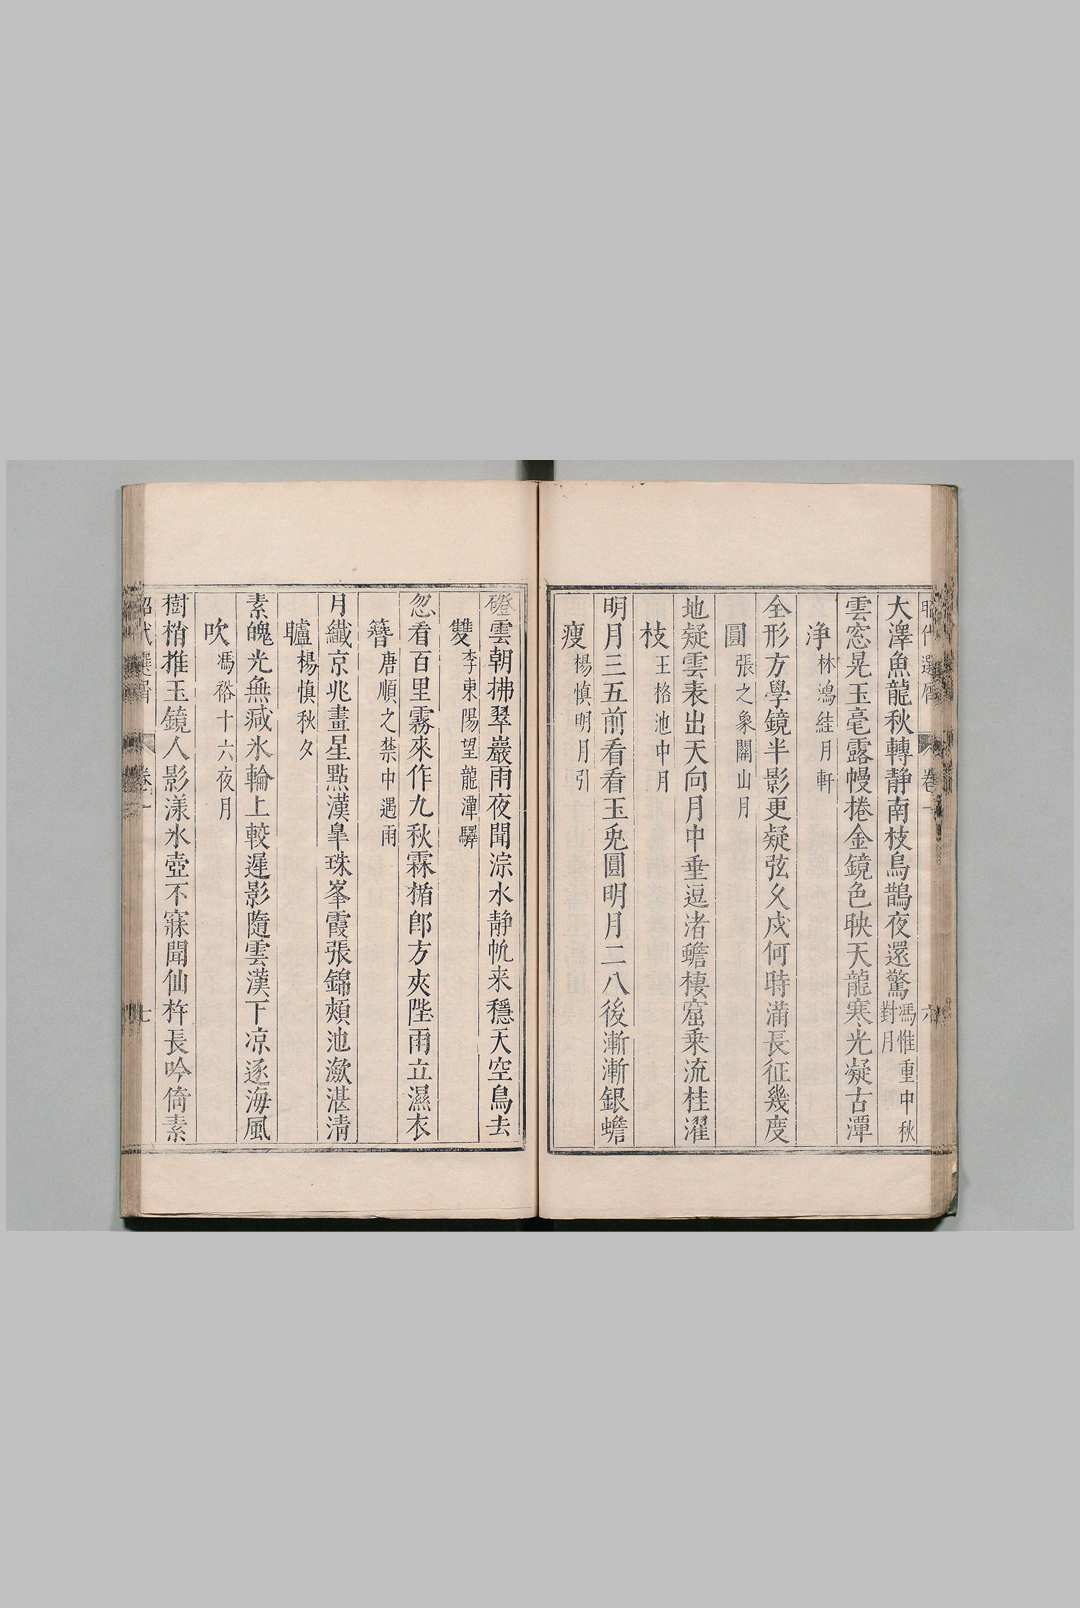 昭代選屑 卷一 六
大澤魚龍秋轉靜南枝烏鵲夜還驚馮惟重中秋對月
雲窓晃玉毫露幔捲金鏡色映天龍寒光凝古潭
淨林鴻絓月軒
全形方學鏡半影更疑弦乆戍何時滿長征幾度
圓張之象關山月
地疑雲表出天向月中垂逗渚蟾棲窟乗流桂濯
枝王格池中月
明月三五前看看玉兎圓明月二八後漸漸銀蟾
瘦楊慎明月引
磴雲朝拂翠巖雨夜聞淙水靜帆来穩天空鳥去
雙李東陽望龍潭驛
忽看百里霧來作九秋霖楯郎方夾陛雨立濕衣
簪唐順之禁中遇雨
月纎京兆畫星點漢臯珠峯霞張錦頰池瀲湛清
矑楊慎秋夕
素魄光無減氷輪上較遲影隨雲漢下凉逐海風
吹馮裕十六夜月
樹梢推玉鏡人影漾氷壺不寐聞仙杵長吟倚素
昭代選屑 卷一 七